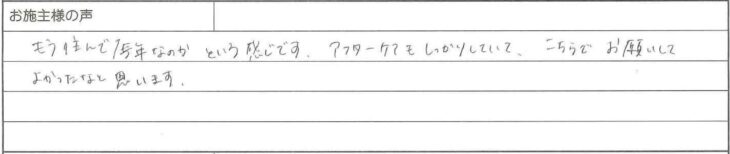 お施主様の声
もう住んで1周年なのか という感じです。アフターケアもしっかりしていて、こちらでお願いして
よかったなと思います。